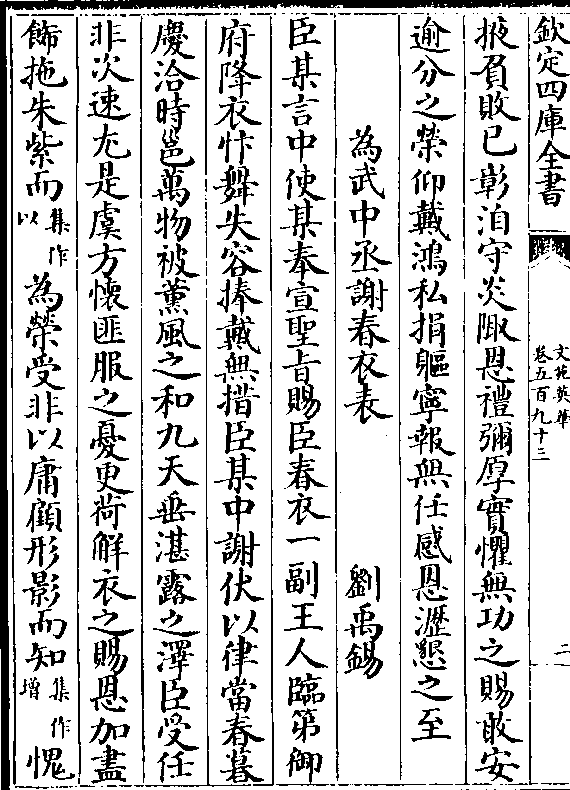 欽定四庫全書
文苑英華
卷五百九十三
二
掖負敗已彰洎守炎陬恩禮彌厚實懼無功之賜敢安
逾分之榮仰戴鴻私捐軀寧報無任感恩瀝懇之至
為武中丞謝春衣表 劉禹錫
臣某言中使某奉宣聖旨賜臣春衣一副王人臨第御
府降衣忭舞失容捧戴無措臣某中謝伏以律當春暮
慶洽時邕萬物被薰風之和九天垂湛露之澤臣受任
非次速尤是虞方懷匪服之憂更荷解衣之賜恩加盡
飾拖朱紫而集作以為榮受非以庸顧形影而知集作增愧